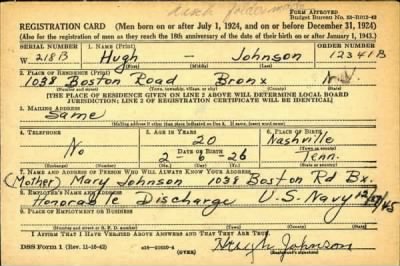 Form Approved.
REGISTRATION CARD (Men born on or after July 1, 1924, and on or before December 31, 1924)
(Also for the registration of men as they reach the 18th anniversary of the date of their birth on or after January 1, 1943.)
SERIAL NUMBER 1. NAME (Print) ORDER NUMBER
W 218B Hugh — Johnson 12341B
(First) (Middle) (Last)
2. PLACE OF RESIDENCE (Print)
1038 Boston Road Bronx N.Y.
(Number and street) (Town, township, village, or city) (County) (State)
[THE PLACE OF RESIDENCE GIVEN ON LINE 2 ABOVE WILL DETERMINE LOCAL BOARD
JURISDICTION; LINE 2 OF REGISTRATION CERTIFICATE WILL BE IDENTICAL]
3. MAILING ADDRESS
Same
[Mailing address if other than place indicated on line 2. If same, insert word same]
4. TELEPHONE 5. AGE IN YEARS 6. PLACE OF BIRTH
No 20 Nashville
DATE OF BIRTH
2-6-26 Tenn.
(Exchange) (Number) (Mo.) (Day) (Yr.) (State or country)
7. NAME AND ADDRESS OF PERSON WHO WILL ALWAYS KNOW YOUR ADDRESS
(Mother) Mary Johnson 1038 Boston Rd Bx.
8. EMPLOYER'S NAME AND ADDRESS
Honorable Discharge U.S. Navy
9. PLACE OF EMPLOYMENT OR BUSINESS
(Number and street or R. F. D. number) (Town) (County) (State)
I AFFIRM THAT I HAVE VERIFIED ABOVE ANSWERS AND THAT THEY ARE TRUE.
DSS Form 1 (Rev. 11-16-42) (OVER) Hugh Johnson